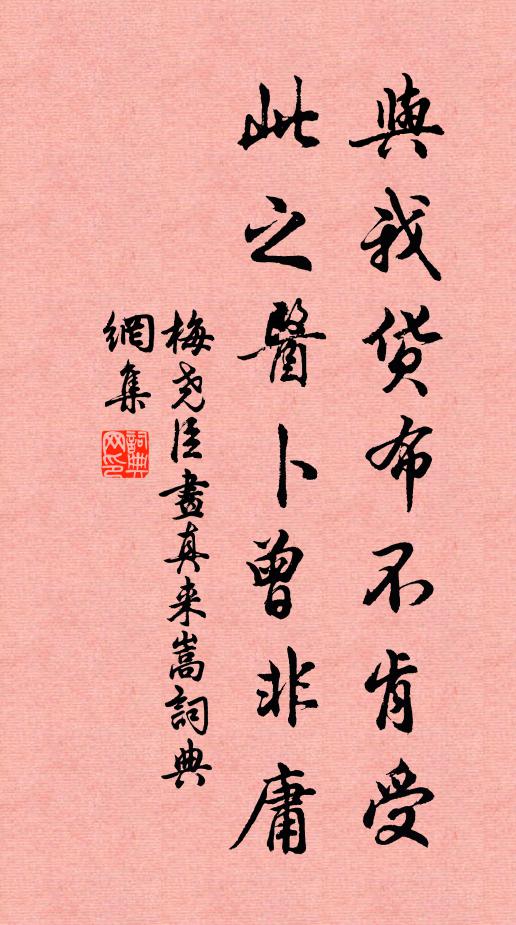 與我貨布不肯受
此之醫卜曾非庸
梅堯臣畫真来嵩詞典
網集
詞典
网印